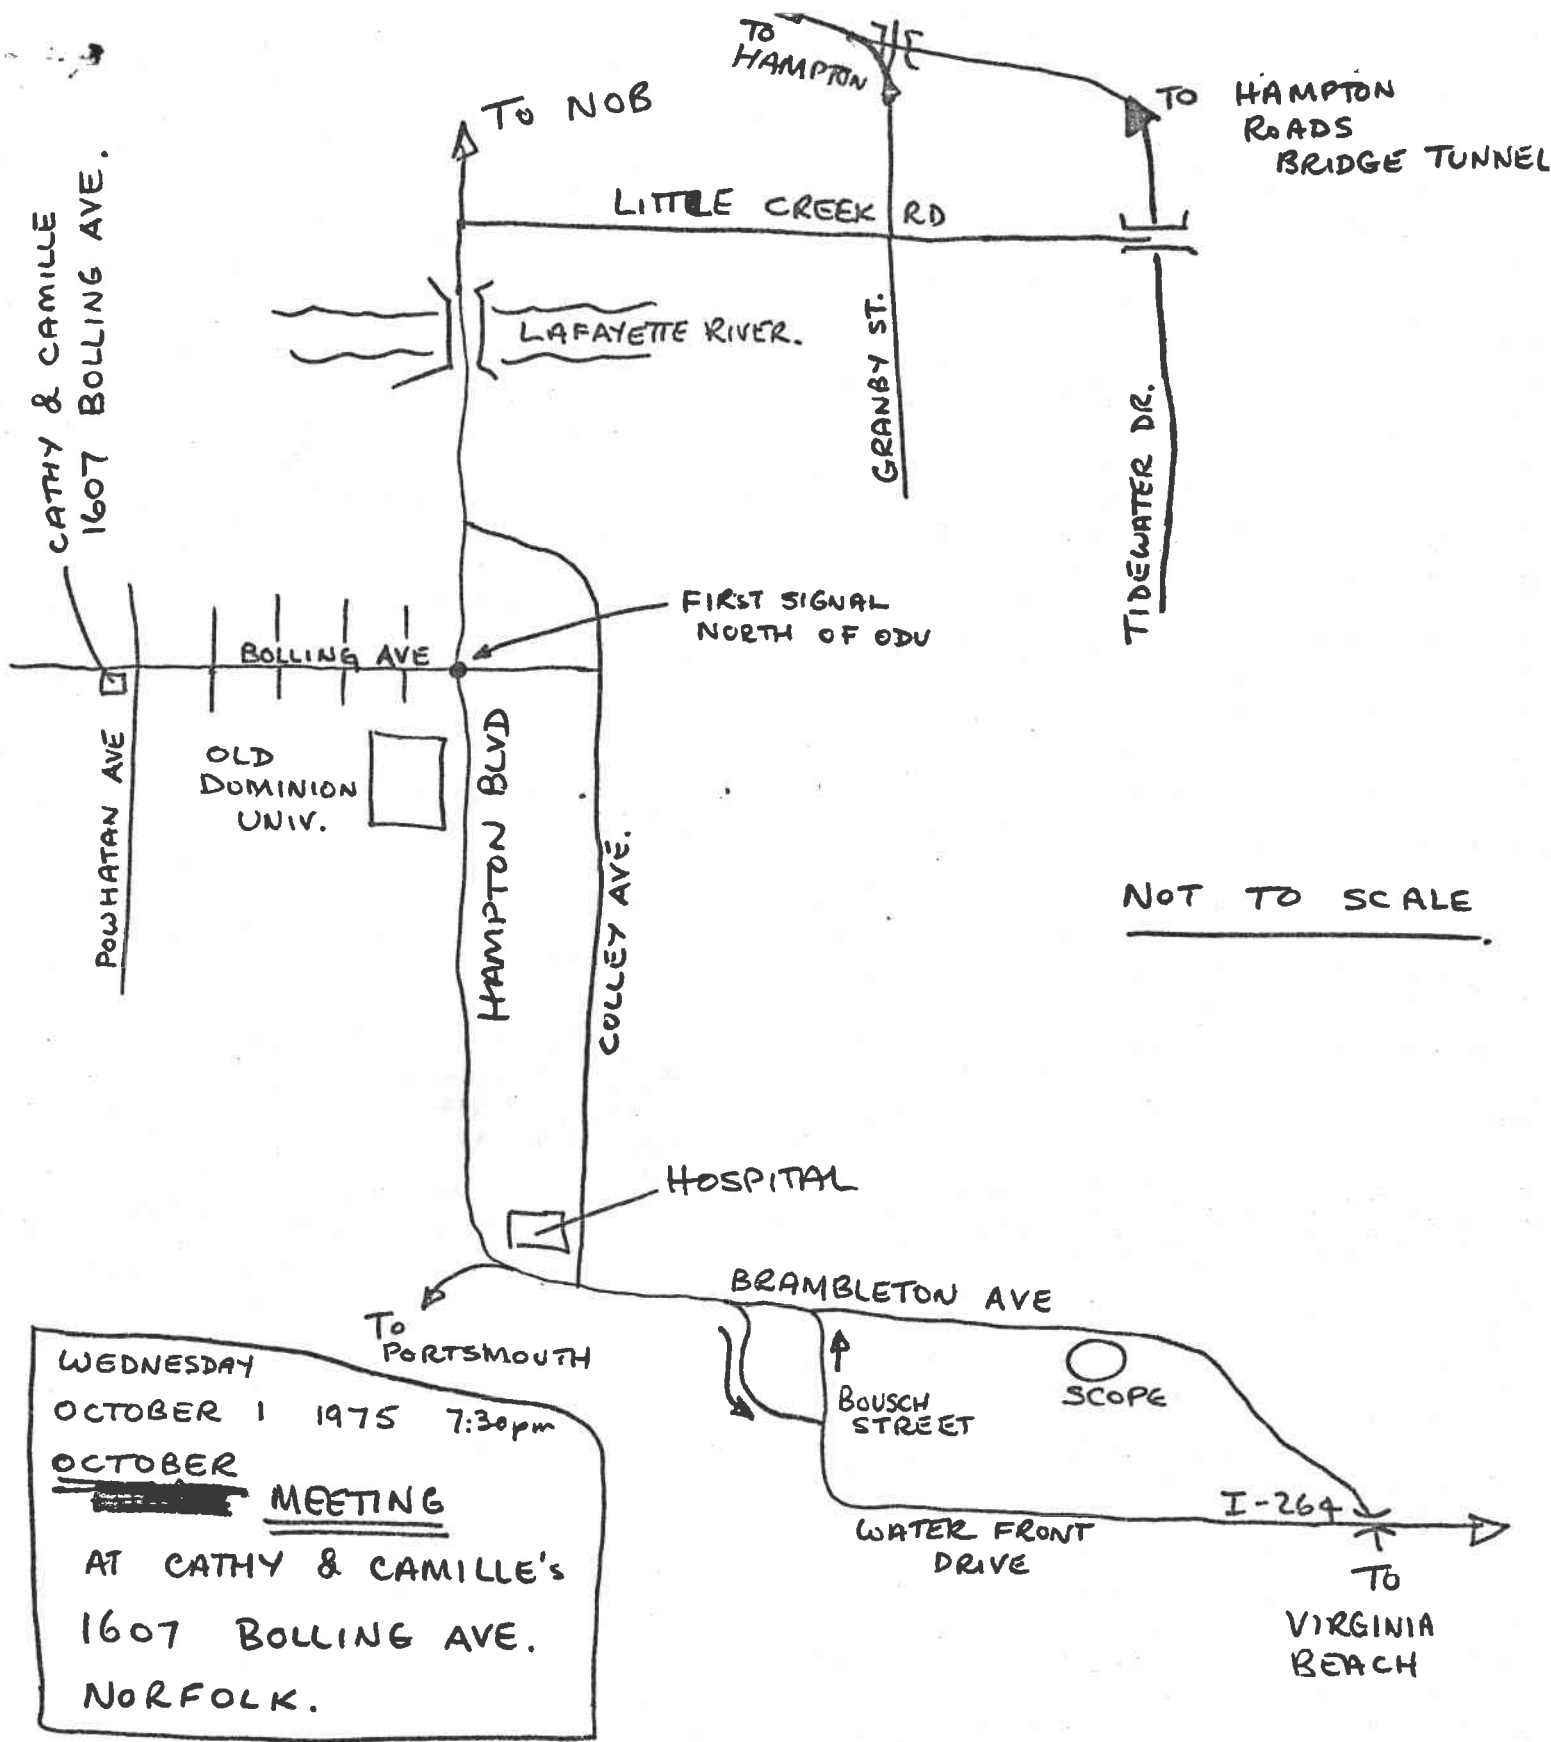 TO
HAMPTON
TO NOB
TO HAMPTON
ROADS
BRIDGE TUNNEL
LITTLE CREEK RD
CATHY & CAMILLE
1607 BOLLING AVE.
LAFAYETTE RIVER.
GRANBY ST.
TIDEWATER DR.
FIRST SIGNAL
NORTH OF ODU
BOLLING AVE
POWHATAN AVE
OLD
DOMINION
UNIV.
HAMPTON BLVD
COLLEY AVE.
NOT TO SCALE.
HOSPITAL
BRAMBLETON AVE
TO
PORTSMOUTH
BOUSCH
STREET
SCOPE
I-264
WATER FRONT
DRIVE
TO
VIRGINIA
BEACH
WEDNESDAY
OCTOBER 1 1975 7:30pm
OCTOBER
MEETING
AT CATHY & CAMILLE's
1607 BOLLING AVE.
NORFOLK.